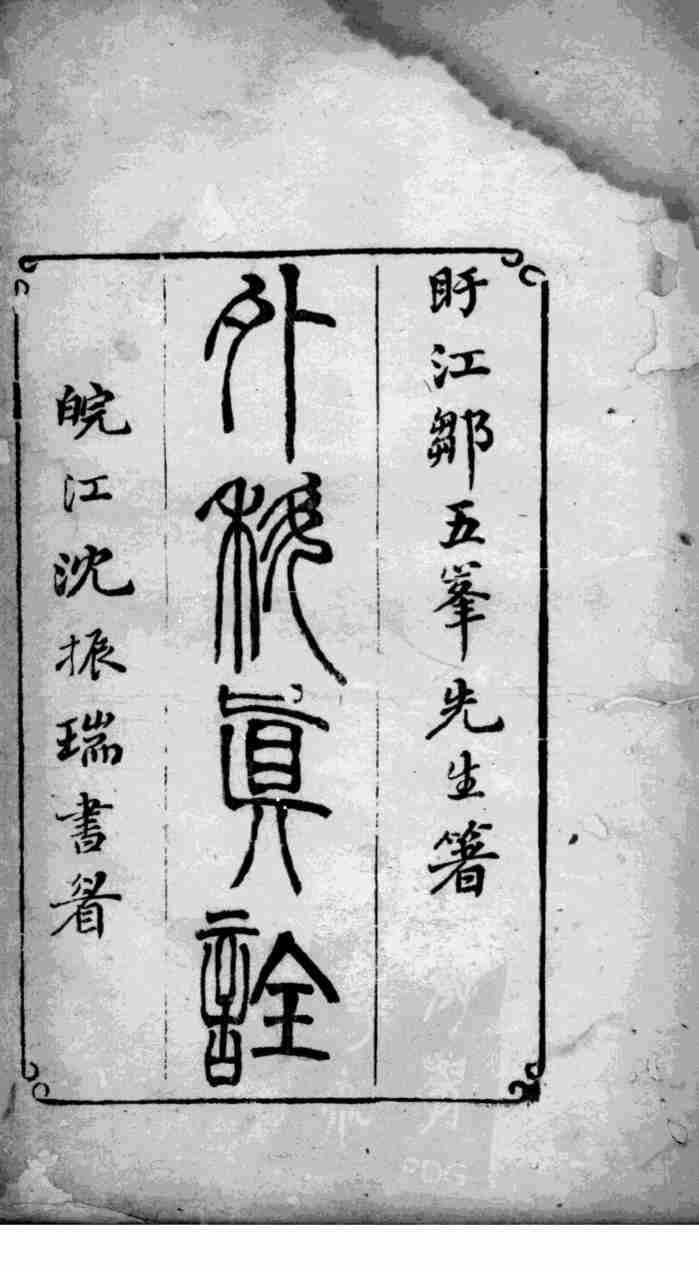 盱江鄒五峯先生箸
外科眞詮
皖江沈振瑞書
PDG